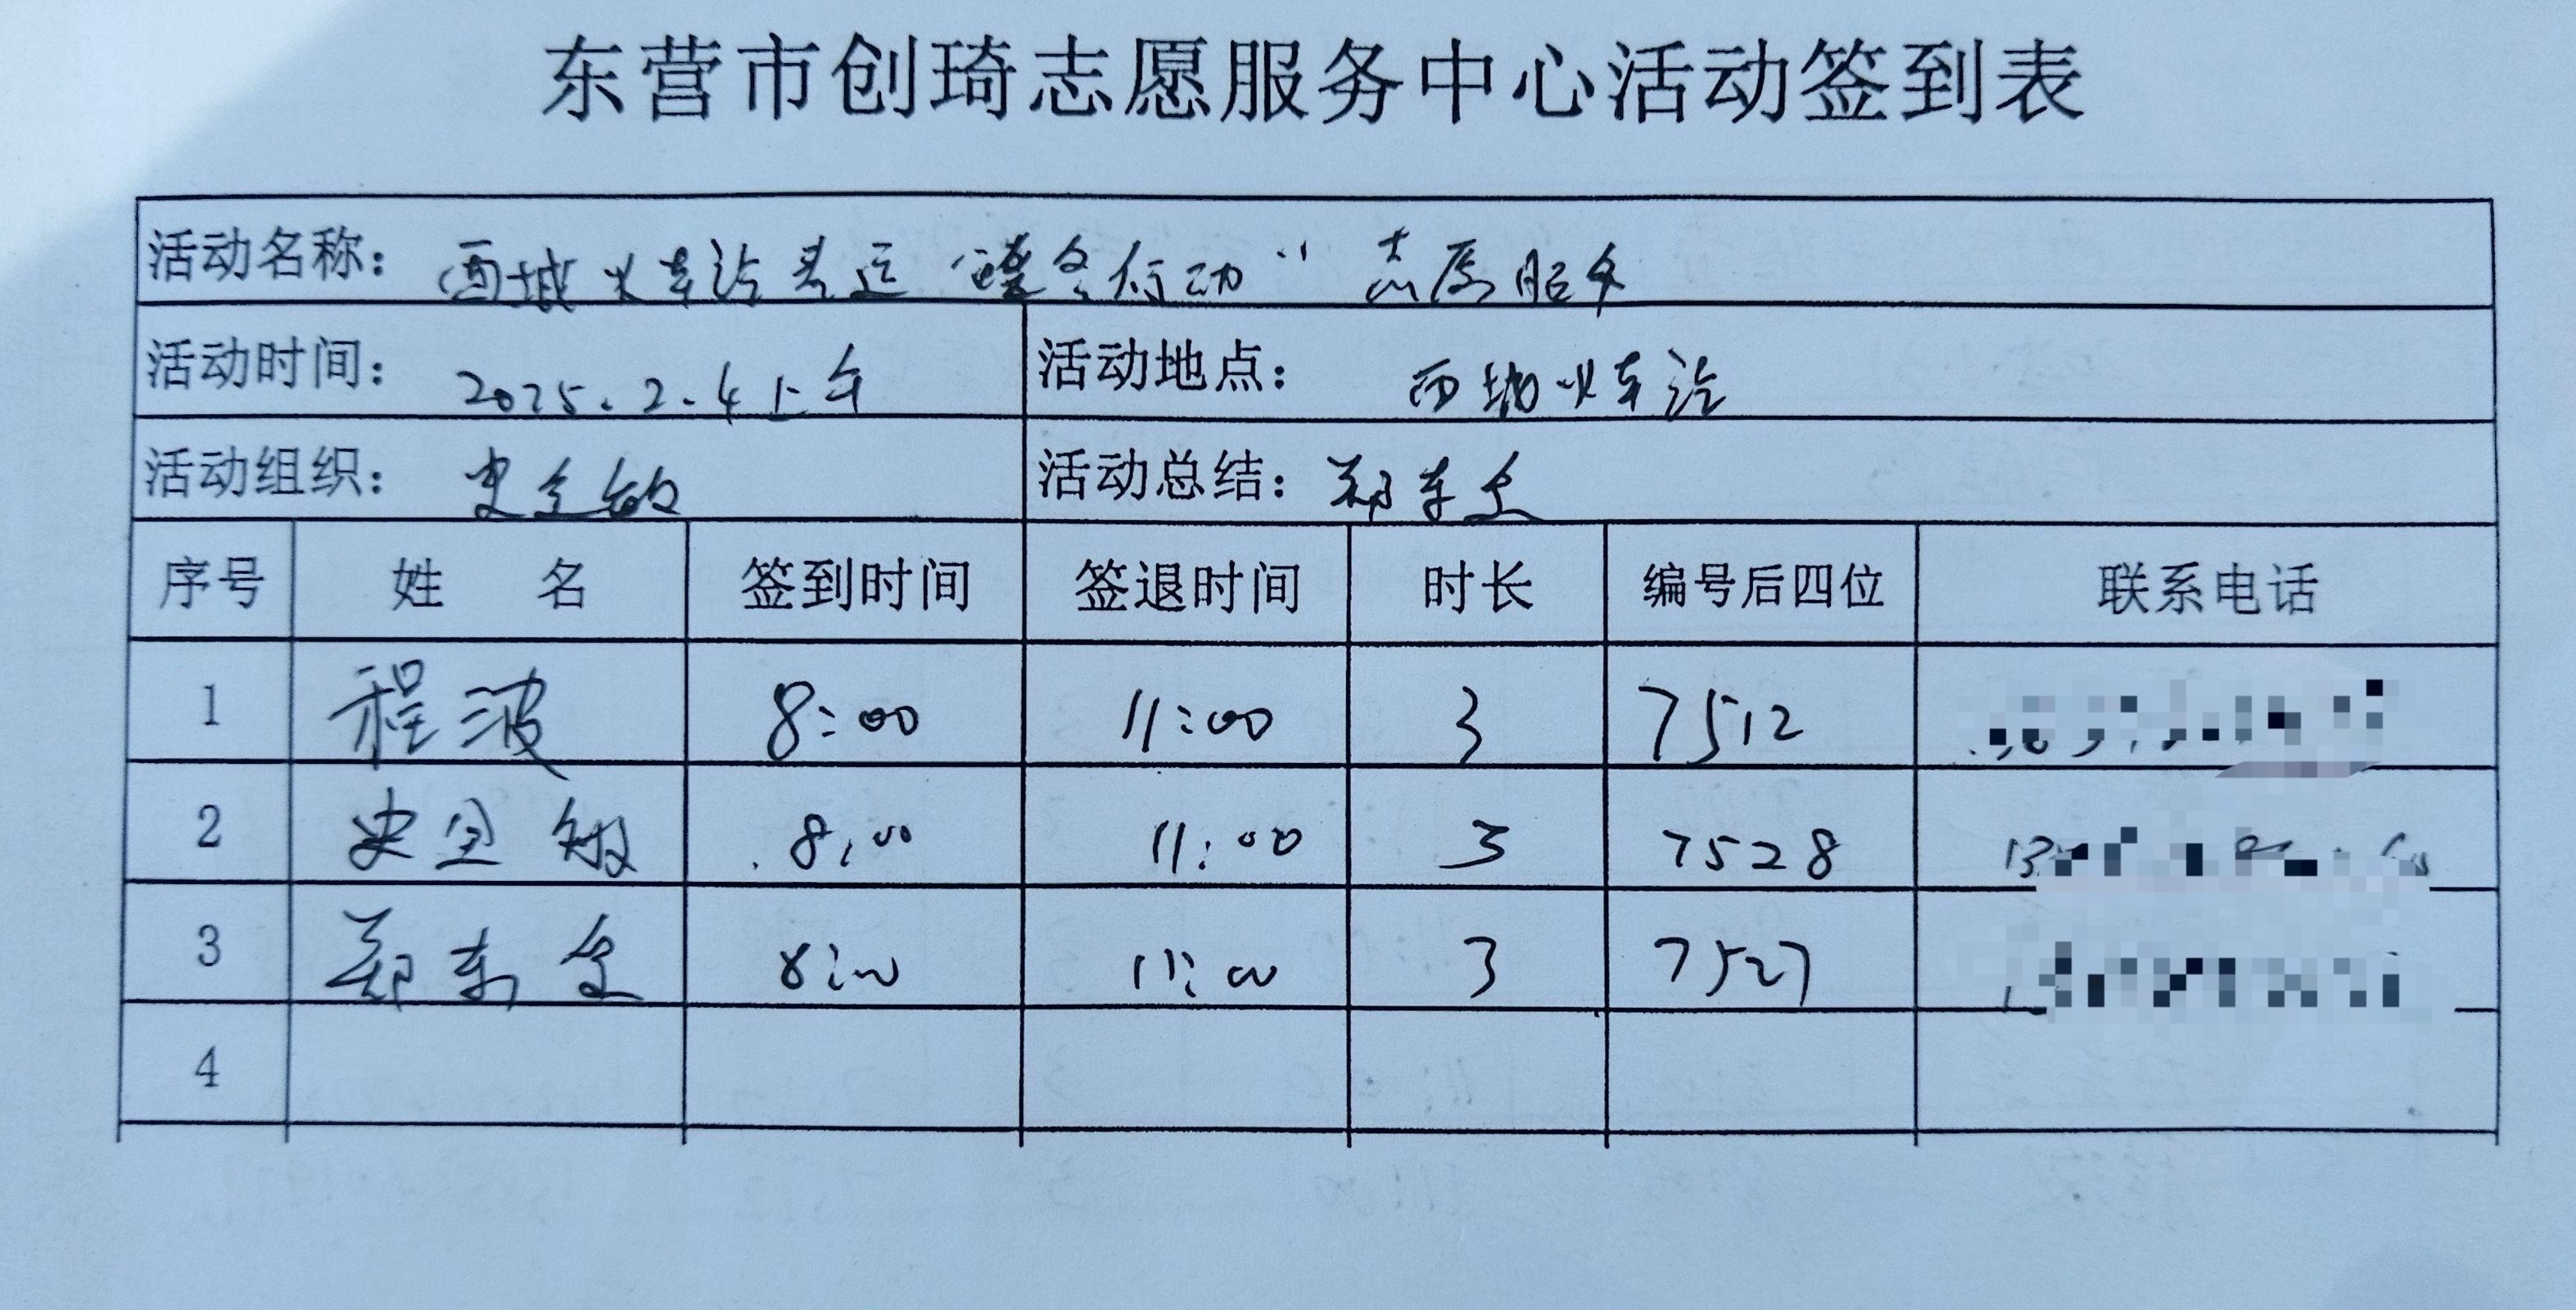 东营市创琦志愿服务中心活动签到表
活动名称： 西城火车站春运“暖冬行动” 志愿服务
活动时间： 2025.2.4上午 活动地点： 西城火车站
活动组织： 史 敏 活动总结： 郑东
序号 姓 名 签到时间 签退时间 时长 编号后四位 联系电话
1 程波 8:00 11:00 3 7512
2 史 敏 8:00 11:00 3 7528
3 郑东 8:00 11:00 3 7527
4